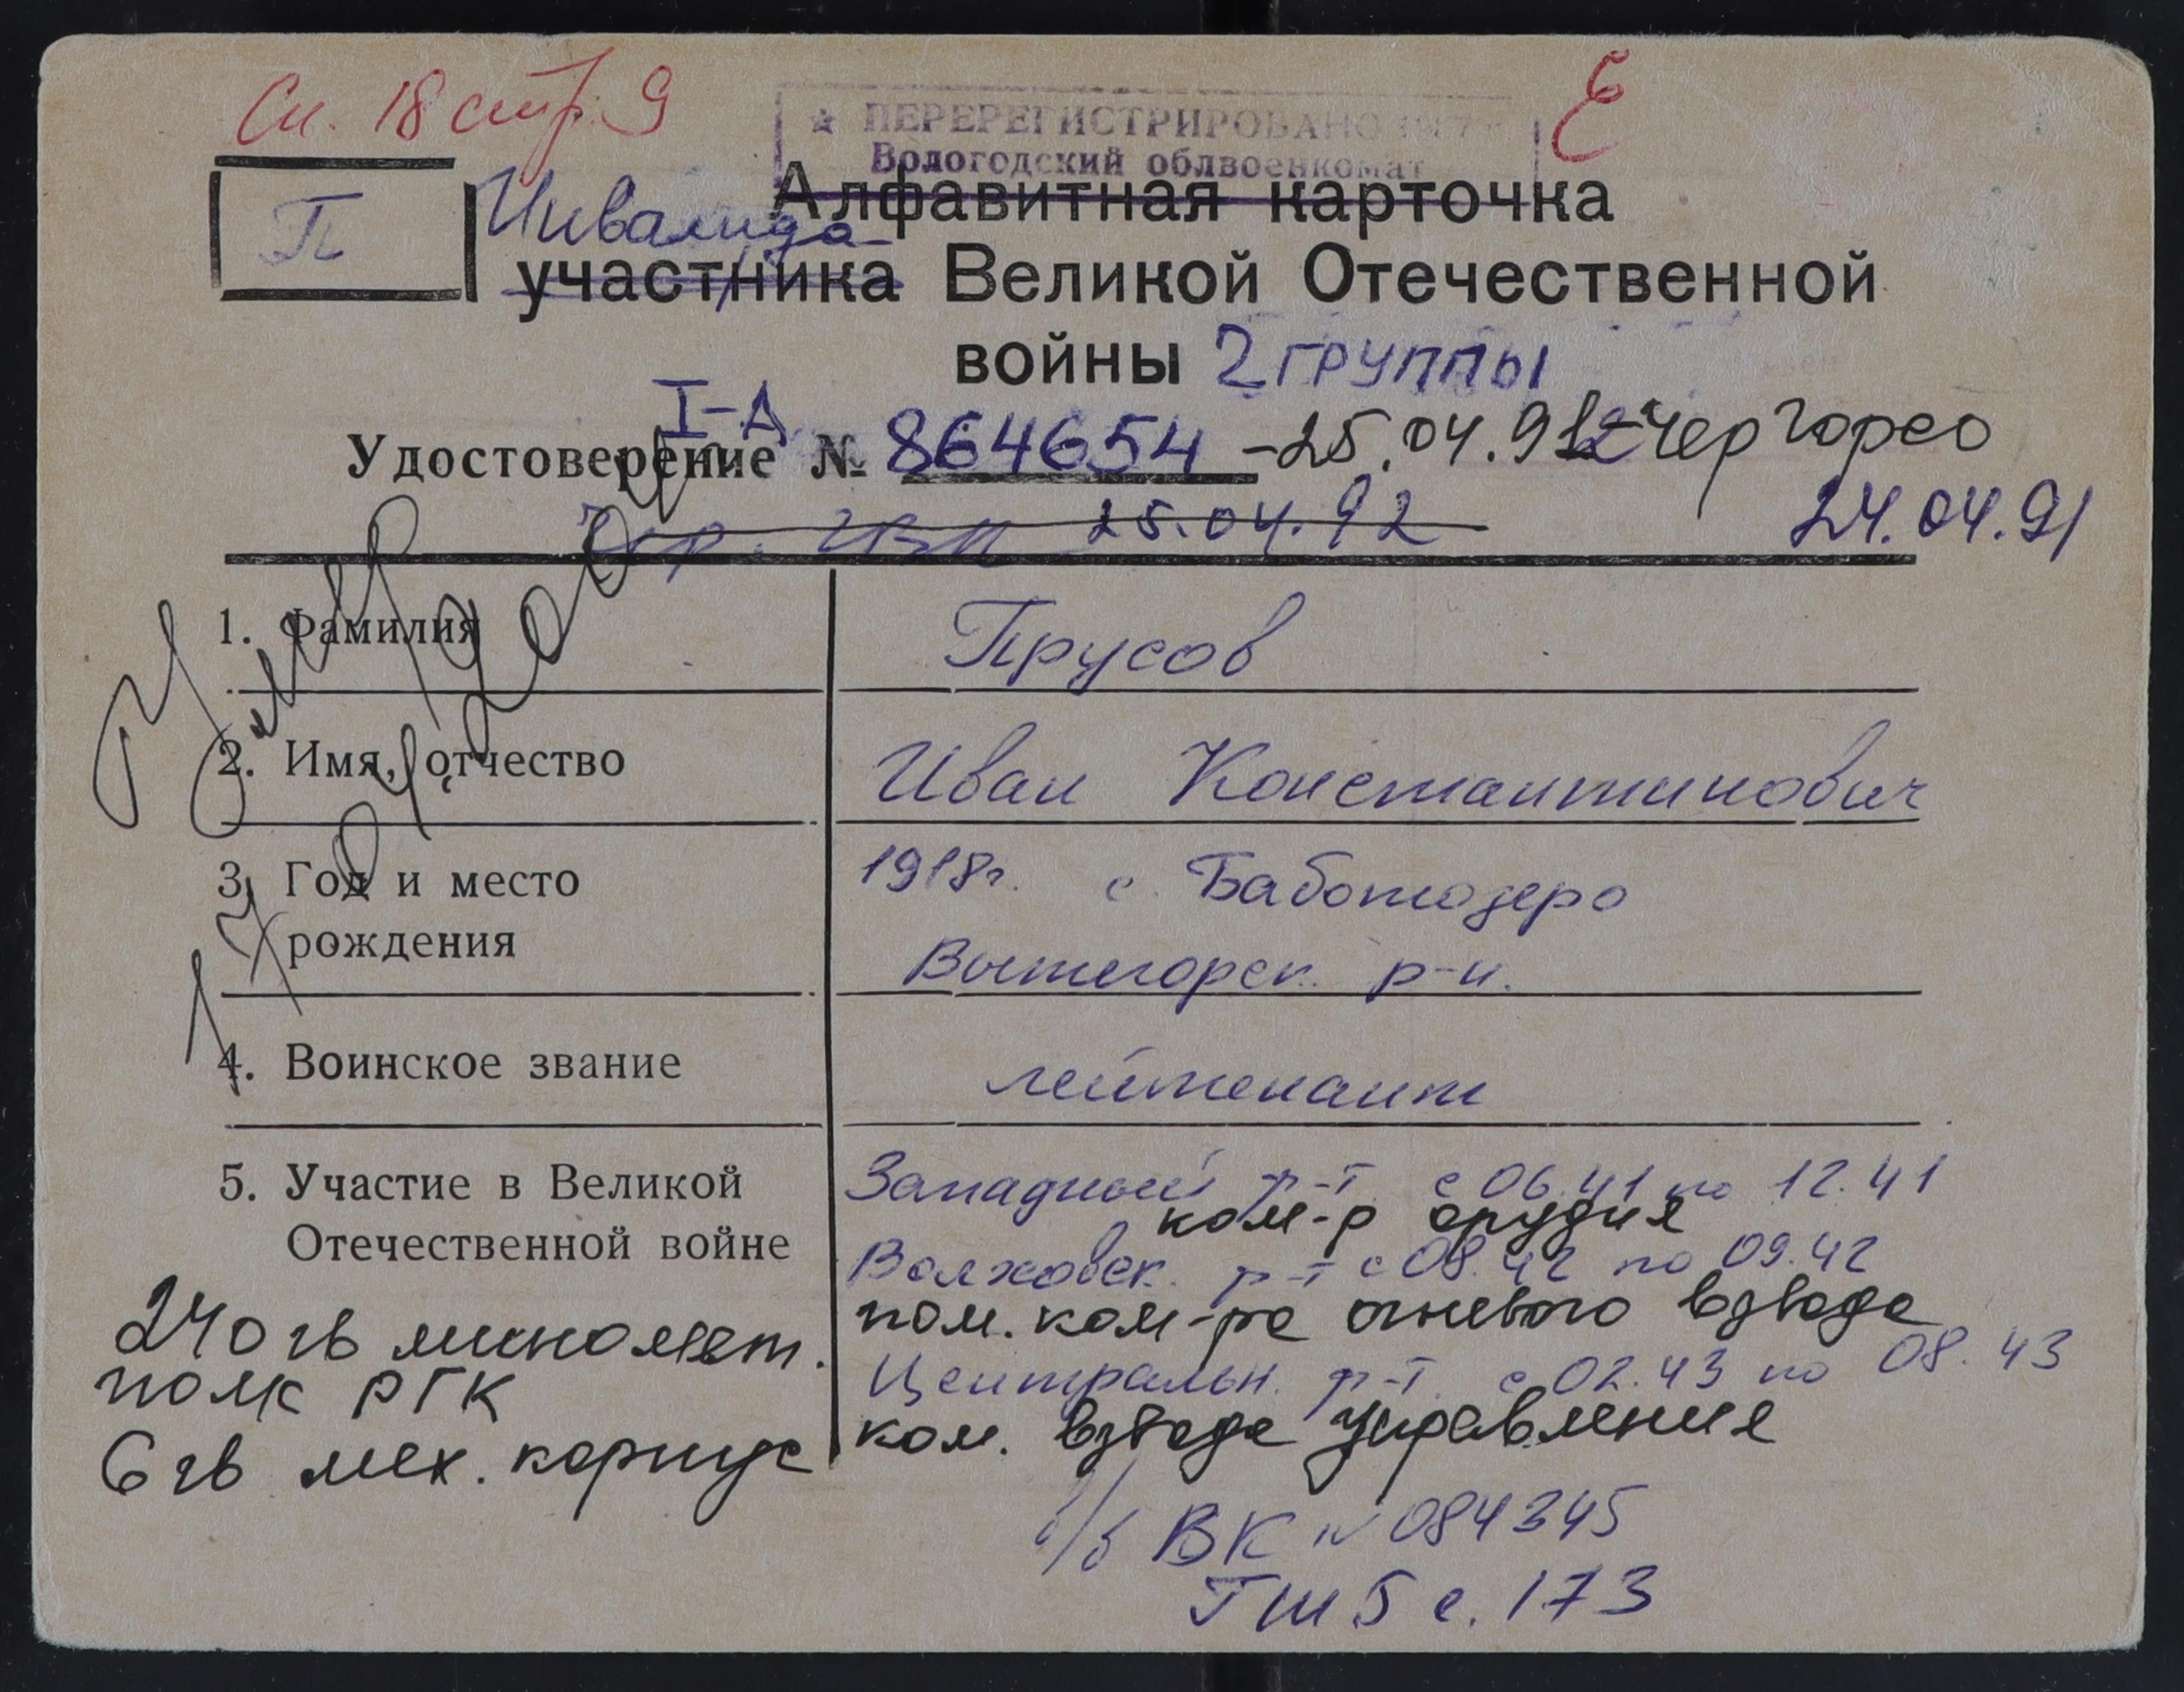 Сп. 18 стр. 9
Е
★ ПЕРЕРЕГИСТРИРОВАНО
Вологодский облвоенкомат
П
Алфавитная карточка
Инвалида
участника Великой Отечественной
войны 2 группы
I-Д
Удостоверение № 864654 -25.04.91г Чер горсо
Чер. ГВК 25.04.92
24.04.91
1. Фамилия
Прусов
2. Имя, отчество
Иван Константинович
3. Год и место
1918г. с. Баботозеро
рождения
Вытегорск. р-н.
4. Воинское звание
лейтенант
5. Участие в Великой
Отечественной войне
Западный ф-т с 06.41 по 12.41
ком-р орудия
Волховск. ф-т с 08.42 по 09.42
пом. ком-ра огневого взвода
Центральн. ф-т. с 02.43 по 08.43
ком. взвода управления
240 гв миномет.
полк РГК
6 гв мех. корпус
в/б ВК № 084345
ГШ 5 с. 173